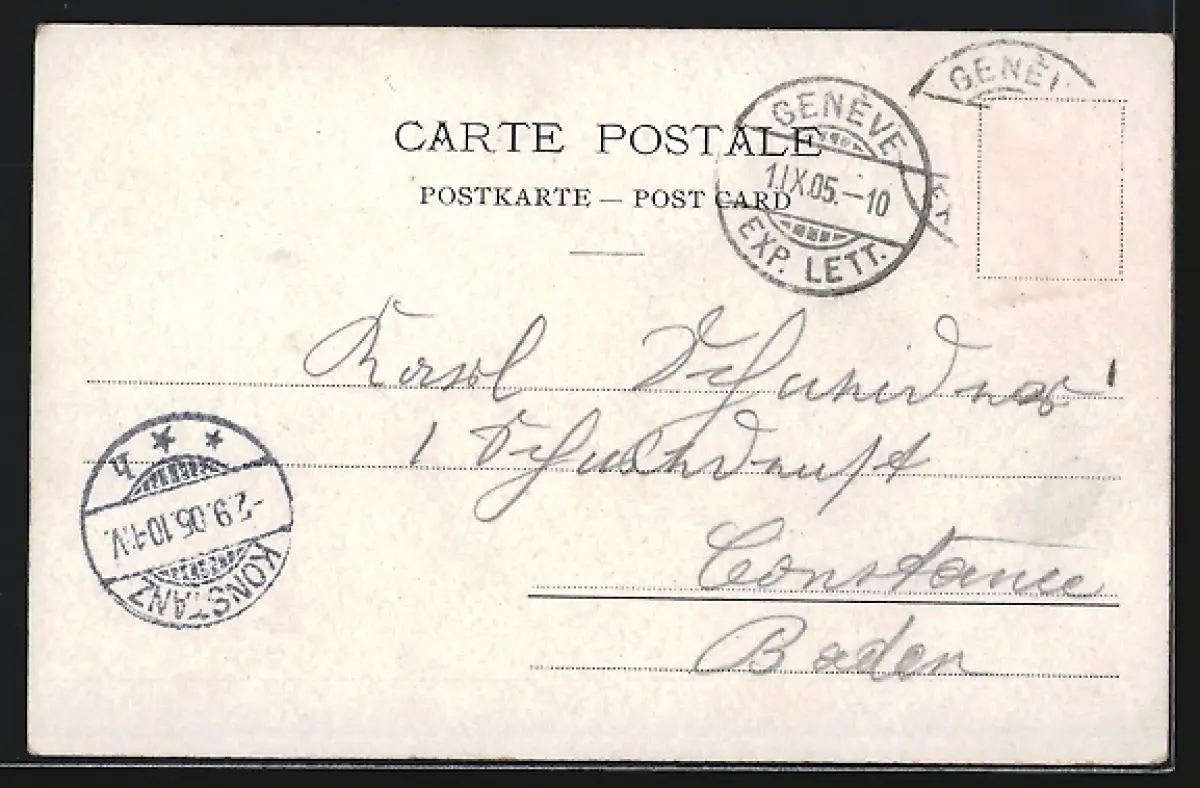 CARTE POSTALE
POSTKARTE — POST CARD
GENÈVE
1.IX.05.—10
EXP. LETT.
GENÈV
Karol
1
Constance
Baden
KONSTANZ
-2.9.05.10-11V.